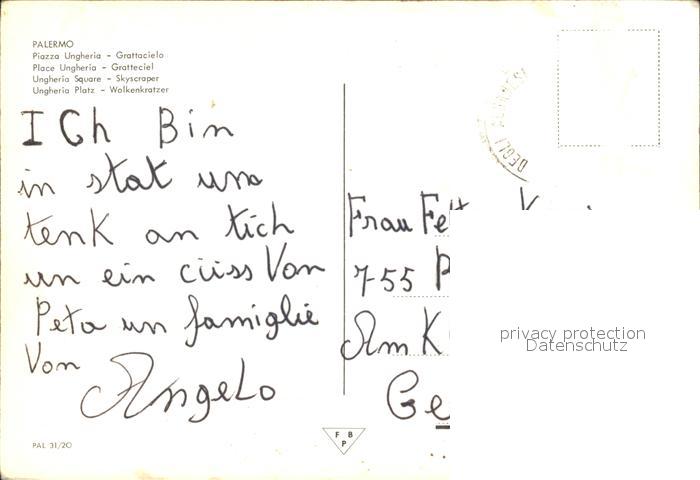 PALERMO
Piazza Ungheria - Grattacielo
Place Ungheria - Gratteciel
Ungheria Square - Skyscraper
Ungheria Platz - Wolkenkratzer
ICh Bin
in stat una
tenk an tich
un ein cüiss Von
Peta un famiglie
Von
Angelo
PAL 31/20
F B P
DEGLI
Frau
7-55
Am K
Ge
privacy protection
Datenschutz